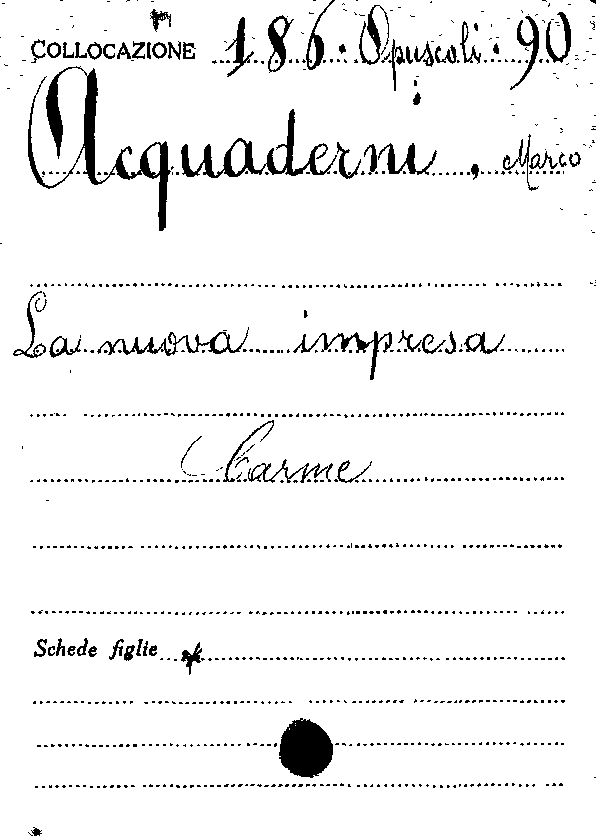 COLLOCAZIONE 186. Opuscoli. 90
Acquaderni, Marco
La nuova impresa
Carme
Schede figlie